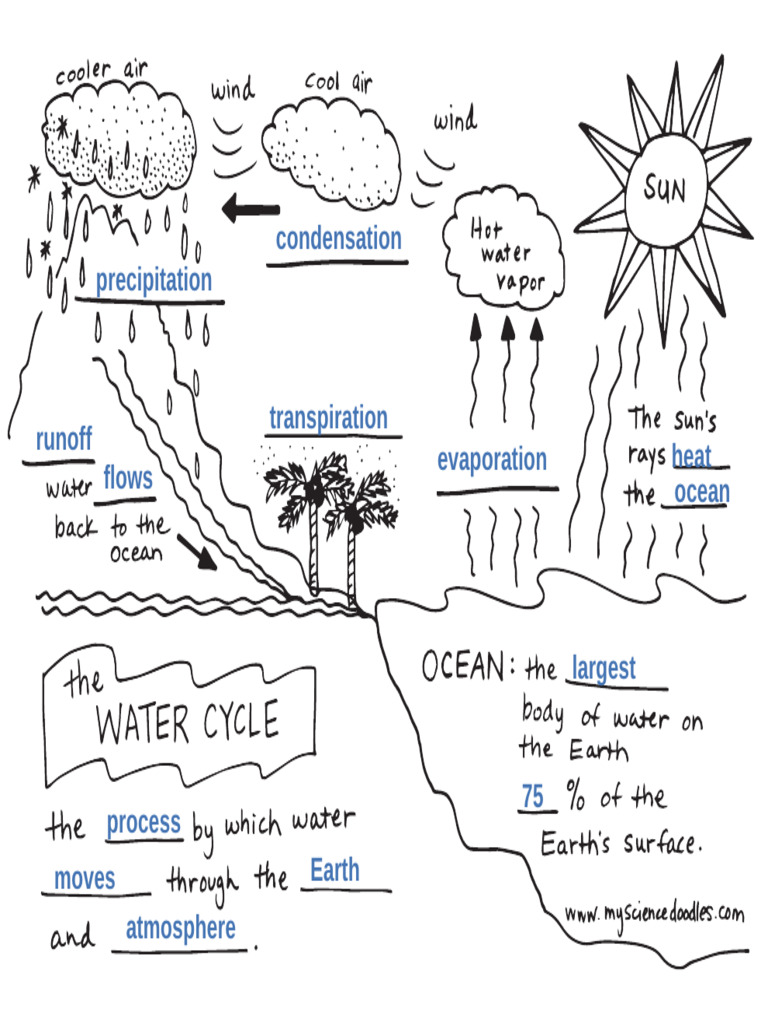 cooler air
wind
cool air
wind
SUN
Hot
water
vapor
condensation
precipitation
transpiration
evaporation
The sun's
rays heat
the ocean
runoff
water flows
back to the
ocean
the
WATER CYCLE
the process by which water
moves through the Earth
and atmosphere.
OCEAN: the largest
body of water on
the Earth
75 % of the
Earth's surface.
www.mysciencedoodles.com